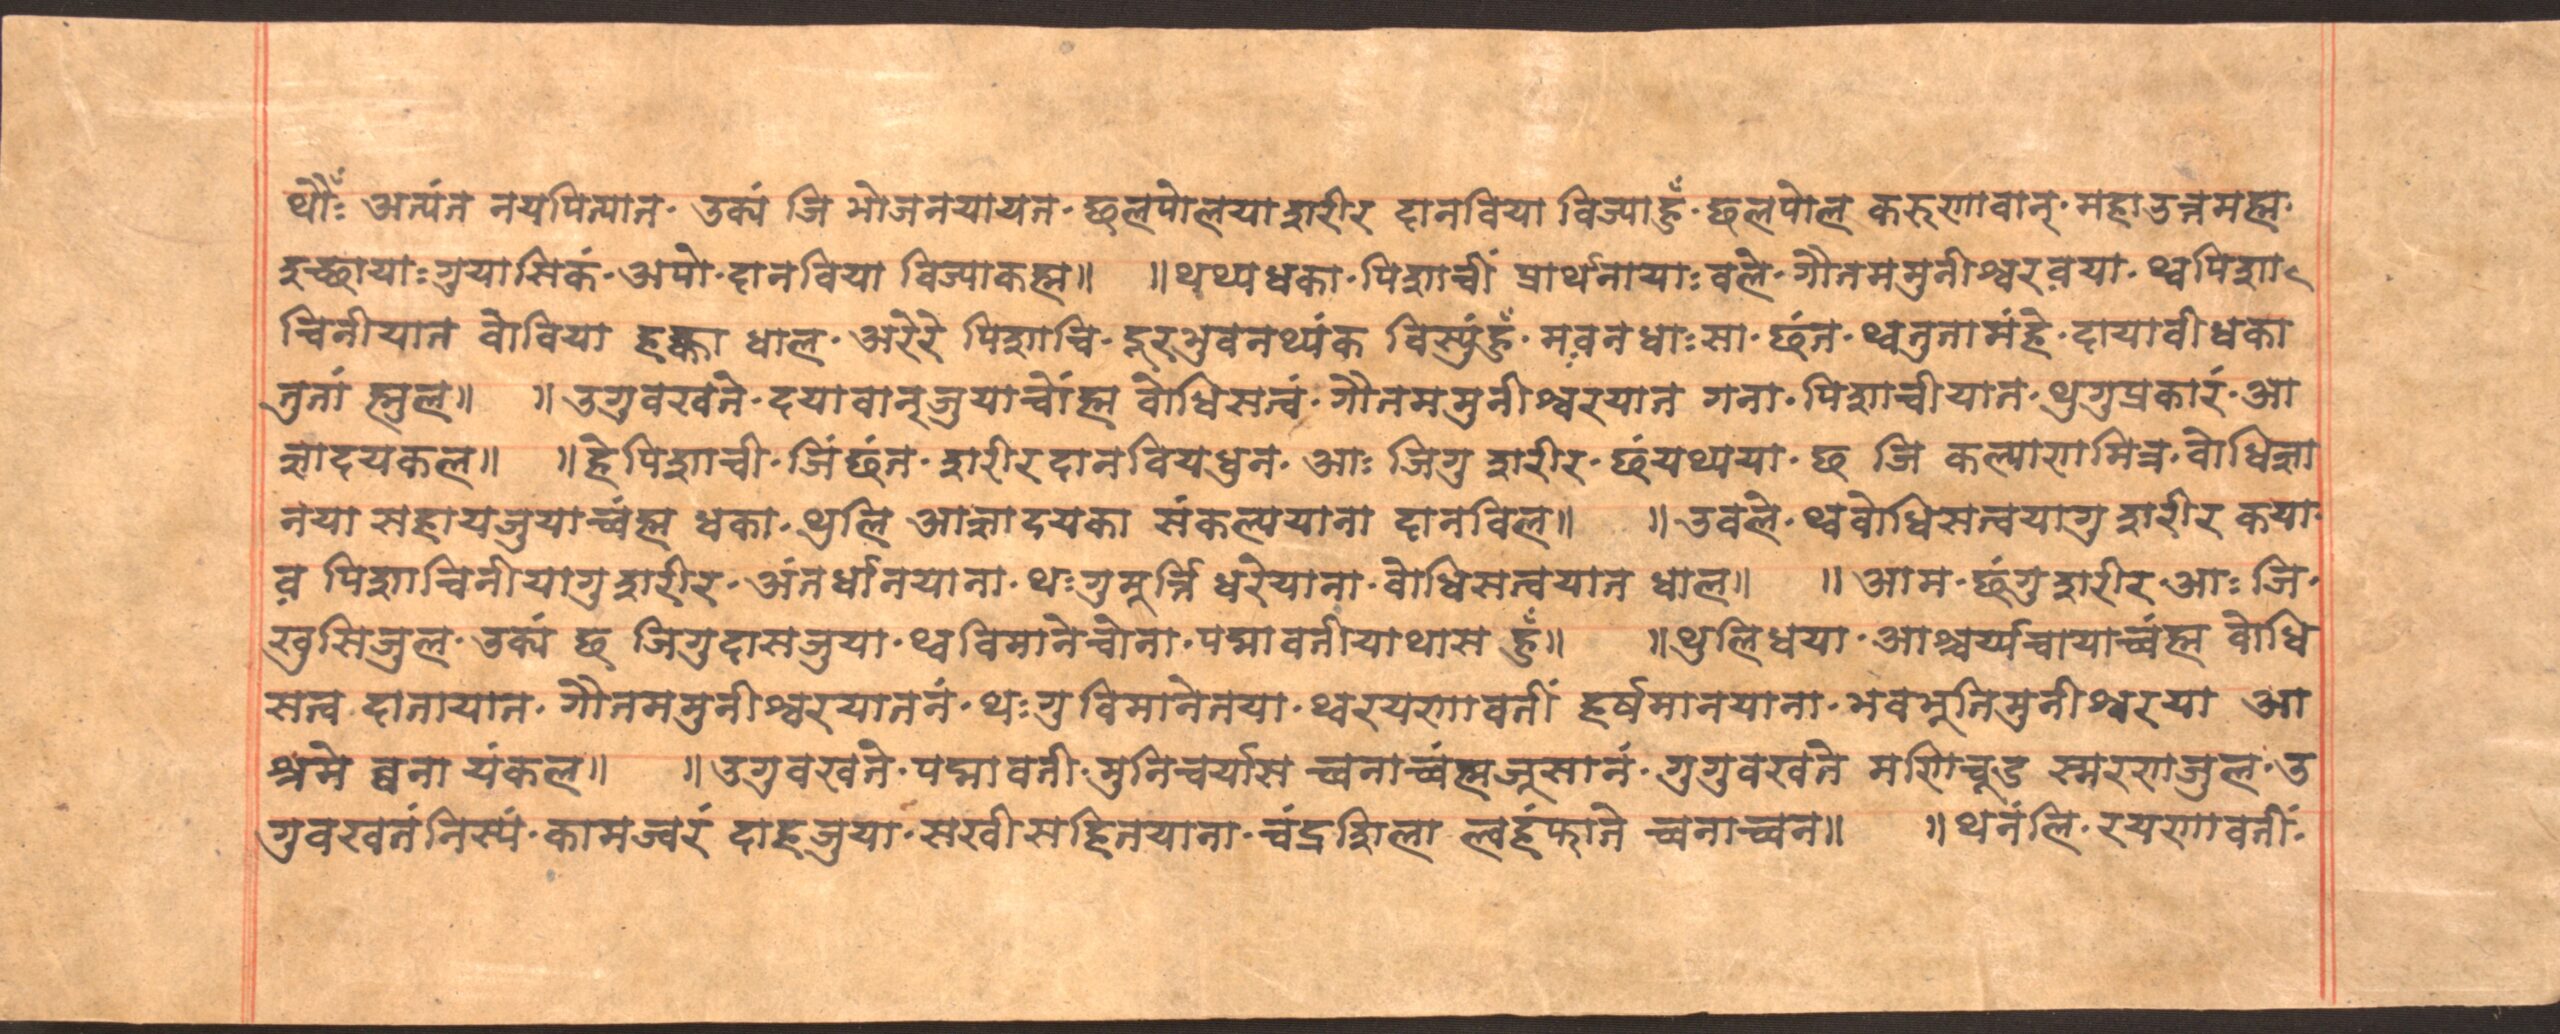 थौँः अत्यंत नयपित्यात· उक्यं जि भोजनयायत· छलपोलयाशरीर दानविया विज्याहुँ· छलपोल करुणावान्· महाउत्तमह्म·
इच्छायाःगुयासिकं· अपो· दानविया विज्याकह्म॥ ॥थथ्यधका· पिशाचीं प्रार्थनायाः वले· गौतममुनीश्वरव़या· थ्वपिशा
चिनीयात वोविया हक्का धाल· अरेरे पिशाचि· दूरभुवनथ्यंक विस्युंहुँ· मव़नधाःसा· छंत· थ्वतुतामंहे· दायावीधका
तुतां ह्मुल॥ ॥उगुवखते· दयावान्जुयाचोंह्म वोधिसत्वं· गौतममुनीश्वरयात गना· पिशाचीयात· थुगुप्रकारं· आ
ज्ञादयकल॥ ॥हेपिशाची· जिंछंत· शरीरदानवियधुन· आः जिगु शरीर· छंयथ्यया· छ जि कल्याणमित्र· वोधिज्ञा
नया सहायजुयाच्वंह्म धका· थुलि आज्ञादयका संकल्पयाना दानविल॥ ॥उवले· थ्ववोधिसत्वयागु शरीर कया·
व़ पिशाचिनीयागुशरीर· अंतर्धानयाना· थःगुमूर्त्ति धरेयाना· वोधिसत्वयात धाल॥ ॥आम· छंगुशरीर आः जि·
खुसिजुल· उक्यं छ जिगुदासजुया· थ्वविमानेचोना· पद्मावतीयाथास हुँ॥ ॥थुलिधया· आश्चर्य्यचायाच्वंह्म वोधि
सत्व दातायात· गौतममुनीश्वरयाततं· थःगु विमानेतया· थ्वरयणावतीं हर्षमानयाना· भवभूतिमुनीश्वरया आ
श्रमे ब्वना यंकल॥ ॥उगुवखते· पद्मावती मुनिचर्यास च्वनाच्वंह्मजूसानं· गुगुवखते मणिचूड स्मरणजुल· उ
गुवखतंनिस्यं· कामज्वरं दाहजुया· सखीसहितयाना· चंद्रशिला ल्वहंफाते च्वनाच्वन॥ ॥थनंलि· रयणावतीं·